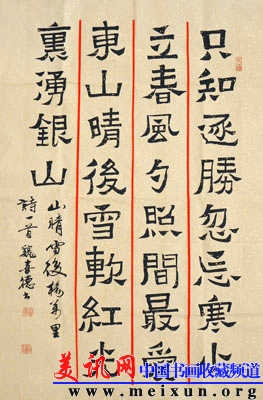 只知逐勝忽忘寒小
立春風夕照間最愛
東山晴後雪軟紅光
裏湧銀山
山晴雪後楊萬里
詩一首魏喜德書
美讯网 中国书画收藏频道
www.meixun.org